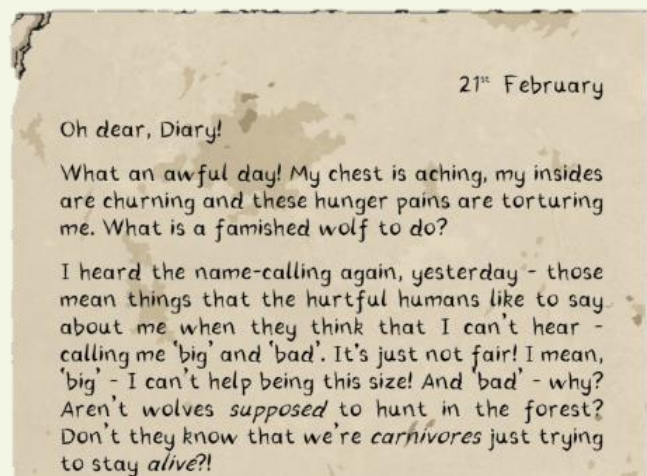 21st February
Oh dear, Diary!
What an awful day! My chest is aching, my insides
are churning and these hunger pains are torturing
me. What is a famished wolf to do?
I heard the name-calling again, yesterday - those
mean things that the hurtful humans like to say
about me when they think that I can't hear -
calling me 'big' and 'bad'. It's just not fair! I mean,
'big' - I can't help being this size! And 'bad' - why?
Aren't wolves supposed to hunt in the forest?
Don't they know that we're carnivores just trying
to stay alive?!